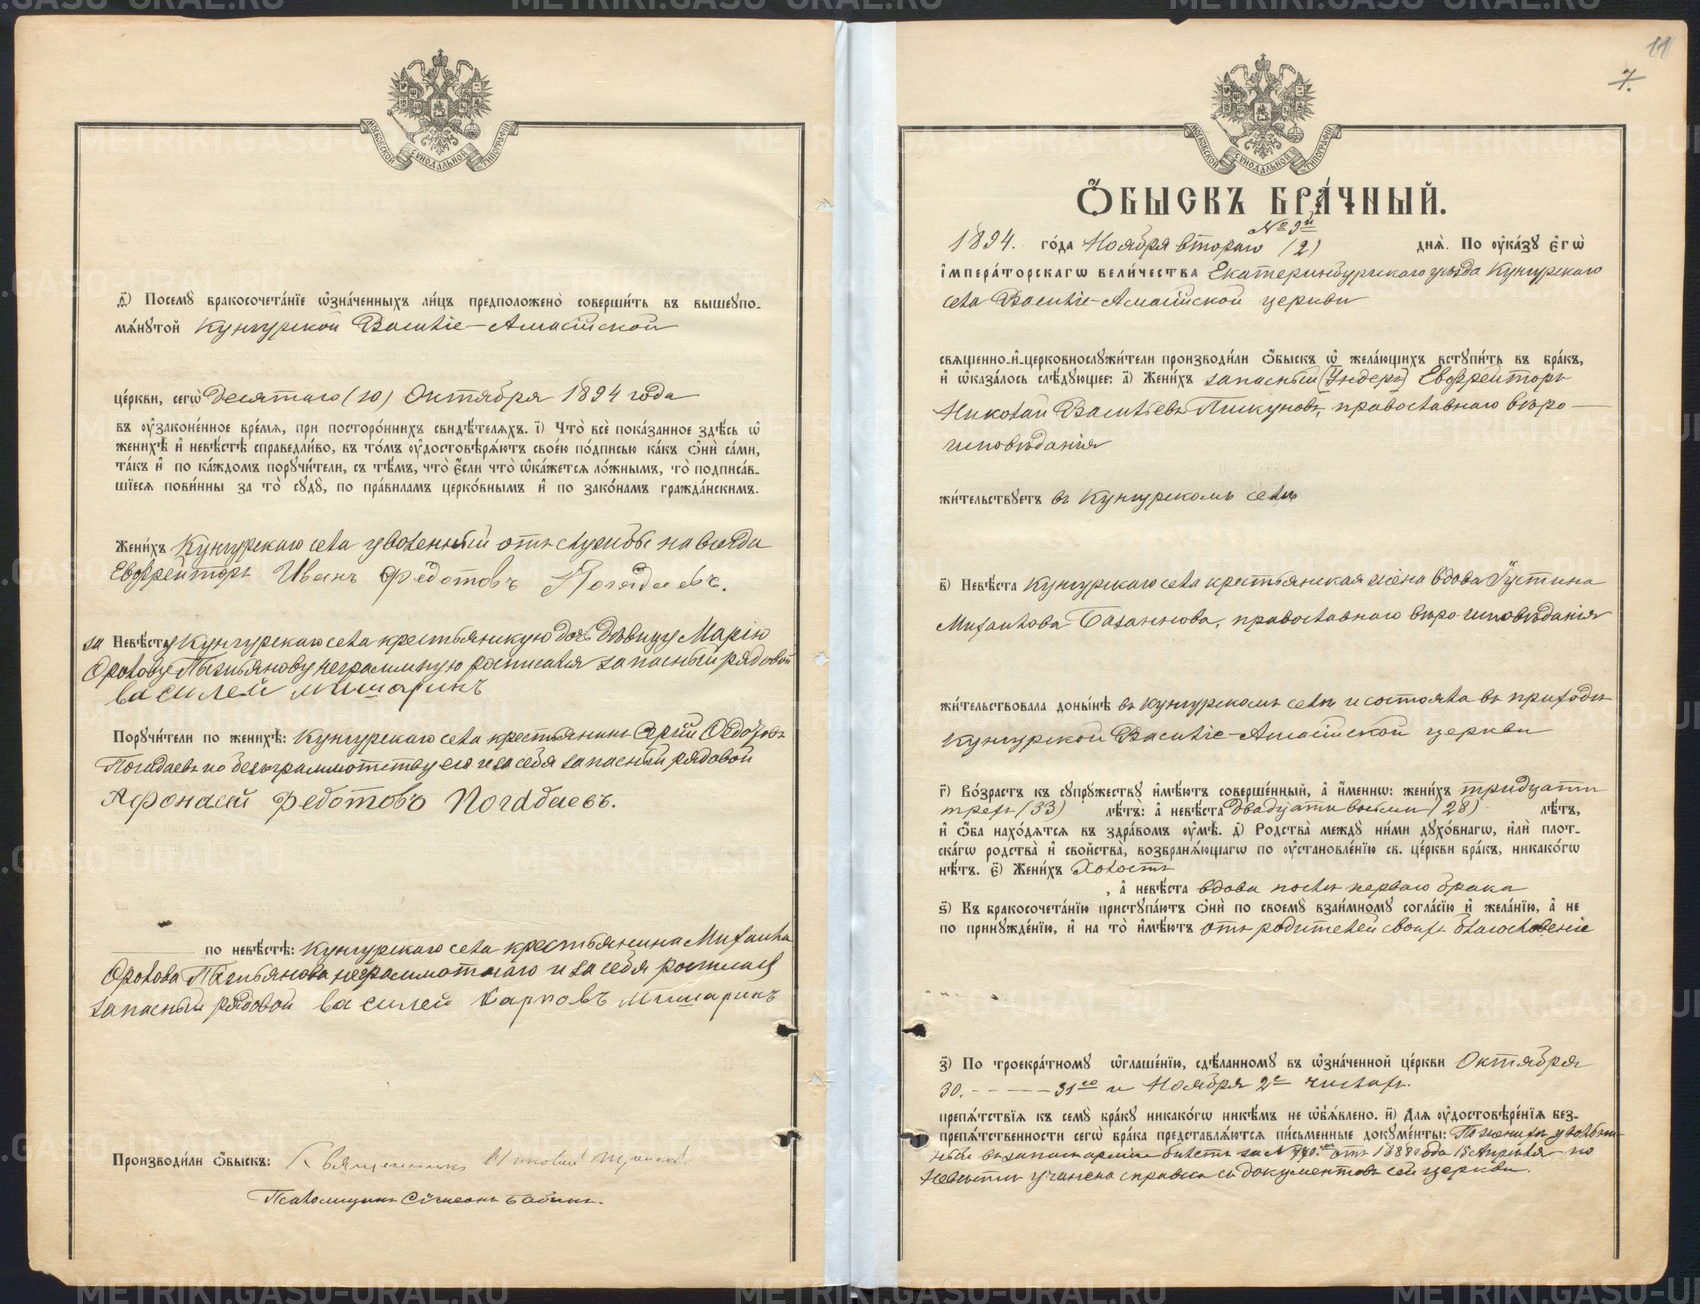 МОСКОВСКОЙ СѴНОДАЛЬНОЙ ТИПОГРАФІИ
ѳ҃) Посемꙋ бракосочета́нїе ѡ҆зна́ченныхъ ли́цъ предположено̀ соверши́ть въ вышеупо-
мѧ́нꙋтой Кунгурской Василіе-Амасійской
це́ркви, сегѡ̀ Десятаго (10) Октября 1894 года
въ ᲂу҆зако́ненное вре́мѧ, при посторо́ннихъ свидѣ́телѧхъ. і҃) Что̀ всѐ пока́занное здѣ́сь ѡ҆
женихѣ̀ и҆ невѣ́стѣ справедли́во, въ то́мъ ᲂу҆достовѣрѧ́ютъ свое́ю по́дписью ка́къ ѻ҆нѝ са́ми,
та́къ и҆ по ка́ждомъ порꙋчи́тели, съ тѣ́мъ, что̀ є҆́сли что̀ ѡ҆ка́жетсѧ ло́жнымъ, то̀ подписа́в-
шїесѧ пови́нны за то̀ сꙋдꙋ̀, по пра́виламъ церко́внымъ и҆ по зако́намъ гражда́нскимъ.
Жени́хъ Кунгурскаго села уволенный отъ службы навсегда
Ефрейторъ Иванъ Федотовъ Погадаевъ.
за Невѣ́стꙋ Кунгурскаго села крестьянскую дочь дѣвицу Марію
Оролову Пызьянову неграмотную росписался запасный рядовой
василей мишаринъ
Порꙋчи́тели по женихѣ̀: Кунгурскаго села крестьянинъ Сергій Ѳедотовъ
Погадаевъ по безграммотству его и за себя запасный рядовой
Афонасей федотовъ Погадаевъ.
по невѣ́стѣ: Кунгурскаго села крестьянина Михаила
Оролова Пызьянова неграммотнаго и за себя росписался
запасный рядовой василей карповъ мишаринъ
Производи́ли ѻ҆́быскъ: Священникъ
Псаломщикъ Сѵмеонъ Бабинъ.
11
7.
МОСКОВСКОЙ СѴНОДАЛЬНОЙ ТИПОГРАФІИ
Ѻ҆́БЫСКЪ БРА́ЧНЫЙ.
№ 9й
1894. го́да Ноября втораго (2) днѧ̀. По ᲂу҆ка́зꙋ Є҆гѡ̀
І҆мпера́торскагѡ вели́чества Екатеринбургскаго уѣзда Кунгурскаго
села Василіе-Амасійской церкви
свѧще́нно-и҆-церковнослꙋжи́тели производи́ли ѻ҆́быскъ ѡ҆ жела́ющихъ встꙋпи́ть въ бра́къ,
и҆ ѡ҆каза́лось слѣ́дꙋющее: а҃) Жени́хъ запасный (Ундеръ) Ефрейторъ
Николай Васильевъ Пискуновъ, православнаго вѣро-
исповѣданія
жи́тельствꙋетъ въ Кунгурскомъ селѣ
в҃) Невѣ́ста Кунгурскаго села крестьянская жена вдова Іустина
Михайлова Базаннова, православнаго вѣро-исповѣданія
жи́тельствовала доны́нѣ въ Кунгурскомъ селѣ и состояла въ приходѣ
Кунгурской Василіе-Амасійской церкви
г҃) Во́зрастъ къ сꙋпрꙋ́жествꙋ и҆мѣ́ютъ соверше́нный, а҆ и҆́менно: жени́хъ тридцати
трехъ (33) лѣ́тъ: а҆ невѣ́ста двадцати восьми (28) лѣ́тъ,
и҆ ѻ҆́ба нахо́дѧтсѧ въ здра́вомъ ᲂу҆мѣ̀. д҃) Родства̀ междꙋ̀ ни́ми дꙋхо́внагѡ, и҆лѝ плот-
ска́гѡ родства̀ и҆ свойства̀, возбранѧ́ющагѡ по ᲂу҆становле́нїю св. це́ркви бра́къ, никако́гѡ
нѣ́тъ. є҃) Жени́хъ Холостъ
, а҆ невѣ́ста вдова послѣ перваго брака
ѕ҃) Къ бракосочета́нїю пристꙋпа́ютъ ѻ҆нѝ по своемꙋ̀ взаи́мномꙋ согла́сїю и҆ жела́нїю, а҆ не
по принꙋжде́нїю, и҆ на то̀ и҆мѣ́ютъ отъ родителей своихъ благословеніе
з҃) По троекра́тномꙋ ѡ҆глаше́нїю, сдѣ́ланномꙋ въ ѡ҆зна́ченной це́ркви Октября
30. - - - - - 31го и Ноября 2е числахъ.
препѧ́тствїѧ къ семꙋ̀ бра́кꙋ никако́гѡ никѣ́мъ не ѡ҆б̾ѧ́влено. и҃) Длѧ ᲂу҆достовѣре́нїѧ без-
препѧ́тственности сегѡ̀ бра́ка представлѧ́ютсѧ пи́сьменные докꙋме́нты: По женихѣ уволбни-
ный въ запасъ арміи билетъ за № 990.мъ отъ 1888 года 15 Апрѣля - по
невѣстѣ учинена справка съ документовъ сей церкви.